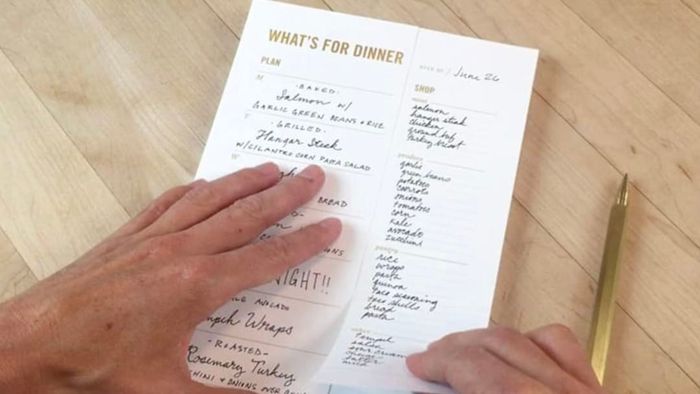 WHAT'S FOR DINNER
WEEK OF / June 26
PLAN
M
·BAKED·
Salmon w/
GARLIC GREEN BEANS & RICE
T
·GRILLED·
Hangar Steak
W/CILANTRO CORN PASTA SALAD
W
BREAD
NIGHT!!
AVOCADO
Wraps
·ROASTED·
Rosemary Turkey
& ONIONS OVER
SHOP
meat
salmon
hanger steak
chicken
ground beef
turkey breast
produce
garlic
green beans
potatoes
carrots
onions
tomatoes
corn
kale
avocado
zucchini
pantry
rice
wraps
pasta
quinoa
taco seasoning
taco shells
bread
pasta
other
salsa
sour cream